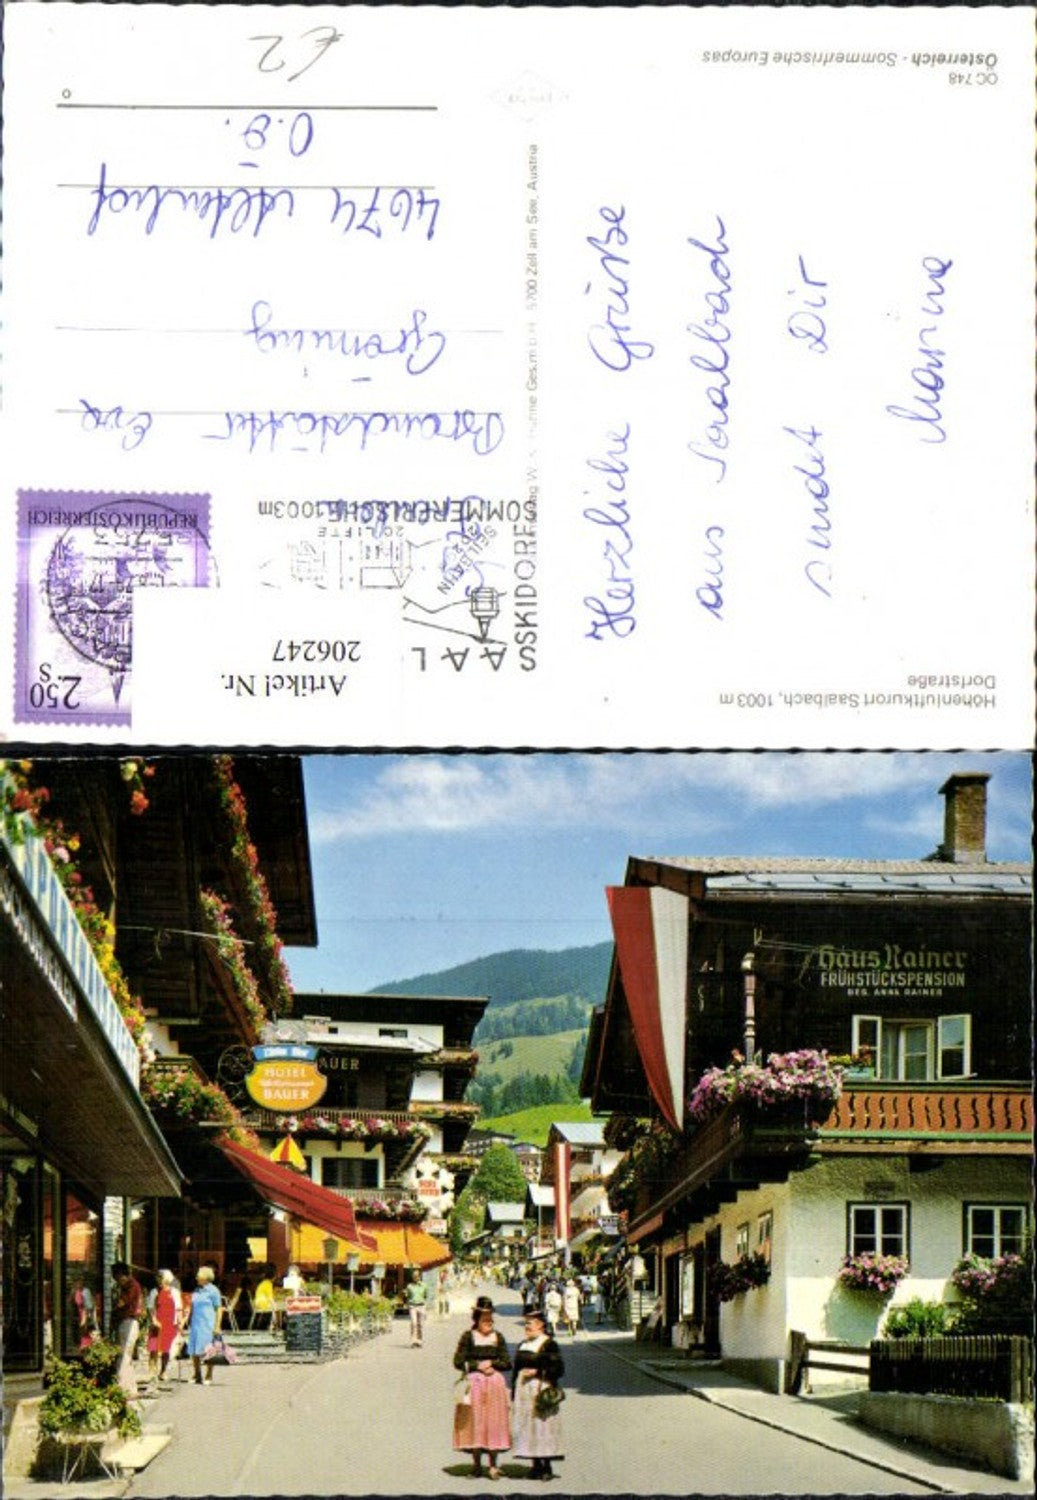 Höhenluftkurort Saalbach, 1003 m
Dorfstraße
Herzliche Grüße
aus Saalbach
sendet Dir
OC 748
Österreich - Sommerfrische Europas
SAAL
SKIDORF
SOMMERFRISCHE 1003m
SEILBAHN
20 LIFTE
2.50
S
REPUBLIK ÖSTERREICH
Artikel Nr.
206247
Brandstätter Eva
Gröming
4674 Altenhof
O.Ö.
€ 2
5700 Zell am See, Austria
Haus Rainer
FRÜHSTÜCKSPENSION
BES. ANNA RAINER
HOTEL
BAUER